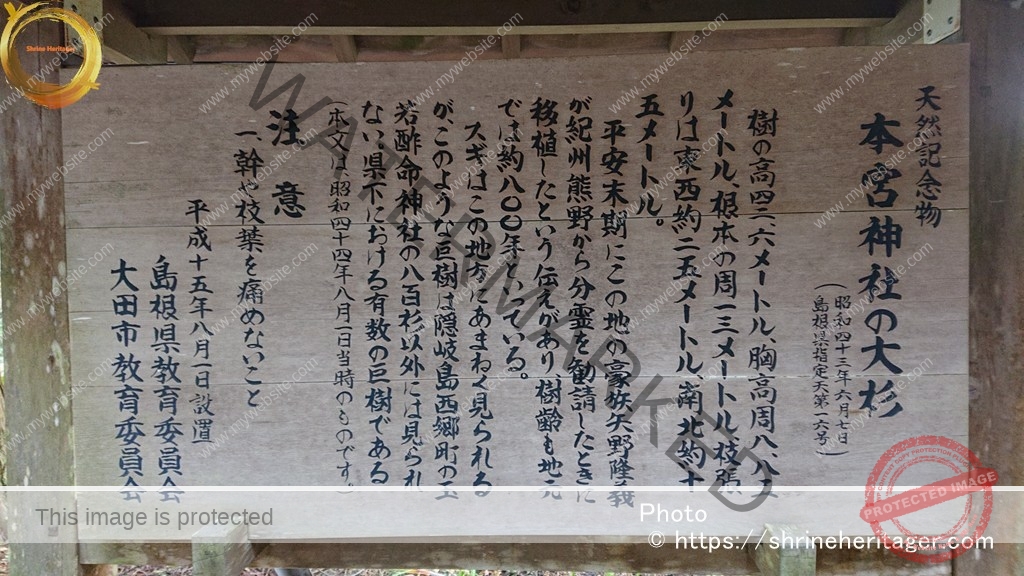 天然記念物
本宮神社の大杉
(昭和四十三年六月七日
島根県指定天第一六号)
樹の高四二、六メートル、胸高周八、八
メートル、根本の周一三メートル枝張
りは東西約二五メートル、南北約十
五メートル。
平安末期にこの地の豪族矢野隆義
が紀州熊野から分霊を勧請したときに
移植したという伝えがあり樹齢も地元
では約八〇〇年といっている。
スギはこの地方にあまねく見られる
が、このような巨樹は隠岐島西郷町の玉
若酢命神社の八百杉以外には見られ
ない県下における有数の巨樹である
(本文は昭和四十四年八月一日当時のものです。)
注意
一、幹や枝葉を痛めないこと
平成十五年八月一日設置
島根県教育委員会
大田市教育委員会
Shrine Heritager
WATERMARKED
www.mywebsite.com
PROTECTED IMAGE
This image is protected
Photo
© https://shrineheritager.com